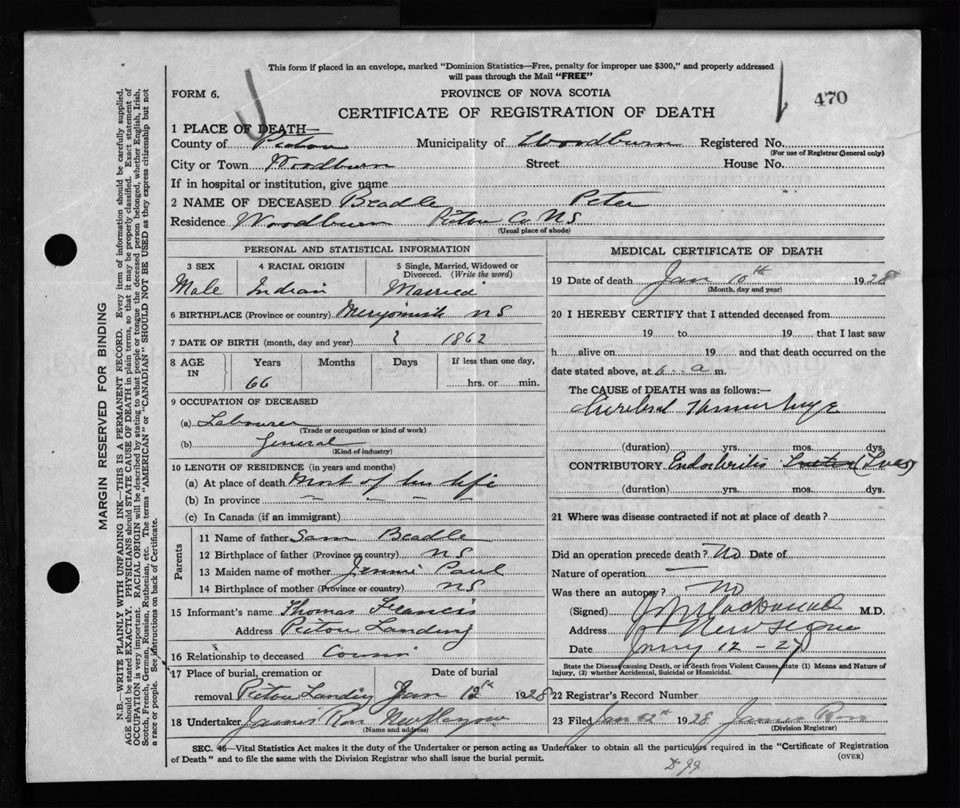 This form if placed in an envelope, marked "Dominion Statistics—Free, penalty for improper use $300," and properly addressed
will pass through the Mail "FREE"
FORM 6.
PROVINCE OF NOVA SCOTIA
470
CERTIFICATE OF REGISTRATION OF DEATH
1 PLACE OF DEATH—
County of Pictou Municipality of Woodburn Registered No.
(For use of Registrar General only)
City or Town Woodburn Street House No.
If in hospital or institution, give name
2 NAME OF DECEASED Beadle Peter
Residence Woodburn Pictou Co. N S
(Usual place of abode)
PERSONAL AND STATISTICAL INFORMATION
3 SEX 4 RACIAL ORIGIN 5 Single, Married, Widowed or
Divorced. (Write the word)
Male Indian Married
6 BIRTHPLACE (Province or country) N S
7 DATE OF BIRTH (month, day and year) ? 1862
8 AGE Years Months Days If less than one day,
IN 66 hrs. or min.
9 OCCUPATION OF DECEASED
(a) Labourer
(Trade or occupation or kind of work)
(b) General
(Kind of industry)
10 LENGTH OF RESIDENCE (in years and months)
(a) At place of death Most of his life
(b) In province – – –
(c) In Canada (if an immigrant)
Parents
11 Name of father Sam Beadle
12 Birthplace of father (Province or country) N S
13 Maiden name of mother Jennie Paul
14 Birthplace of mother (Province or country) N S
15 Informant's name Thomas Francis
Address Pictou Landing
16 Relationship to deceased Cousin
17 Place of burial, cremation or Date of burial
removal Pictou Landing Jan 12th 1928
18 Undertaker James Ross New Glasgow
(Name and address)
MEDICAL CERTIFICATE OF DEATH
19 Date of death Jan 10th 1928
(Month, day and year)
20 I HEREBY CERTIFY that I attended deceased from
19 to 19 that I last saw
h alive on 19 and that death occurred on the
date stated above, at 6 a m.
The CAUSE of DEATH was as follows:—
Cerebral Hemorrhage
(duration) yrs. mos. dys.
CONTRIBUTORY Endarteritis
(duration) yrs. mos. dys.
21 Where was disease contracted if not at place of death?
Did an operation precede death? No Date of
Nature of operation —
Was there an autopsy? No
(Signed) M.D.
Address New Glasgow
Date 12 - 28
State the Disease causing Death, or in death from Violent Causes, state (1) Means and Nature of
Injury, (2) whether Accidental, Suicidal or Homicidal.
22 Registrar's Record Number
23 Filed Jan 12th 1928 James Ross
(Division Registrar)
SEC. 46—Vital Statistics Act makes it the duty of the Undertaker or person acting as Undertaker to obtain all the particulars required in the "Certificate of Registration
of Death" and to file the same with the Division Registrar who shall issue the burial permit.
(OVER)
MARGIN RESERVED FOR BINDING
N.B.—WRITE PLAINLY WITH UNFADING INK—THIS IS A PERMANENT RECORD. Every item of information should be carefully supplied.
AGE should be stated EXACTLY. PHYSICIANS should STATE CAUSE OF DEATH in plain terms, so that it may be properly classified. Exact statement of
OCCUPATION is very important. RACIAL ORIGIN will be described by stating to what people or tongue the deceased person belonged, whether English, Irish,
Scotch, French, German, Russian, Ruthenian, etc. The terms "AMERICAN" or "CANADIAN" SHOULD NOT BE USED as they express citizenship but not
a race or people. See instructions on back of Certificate.